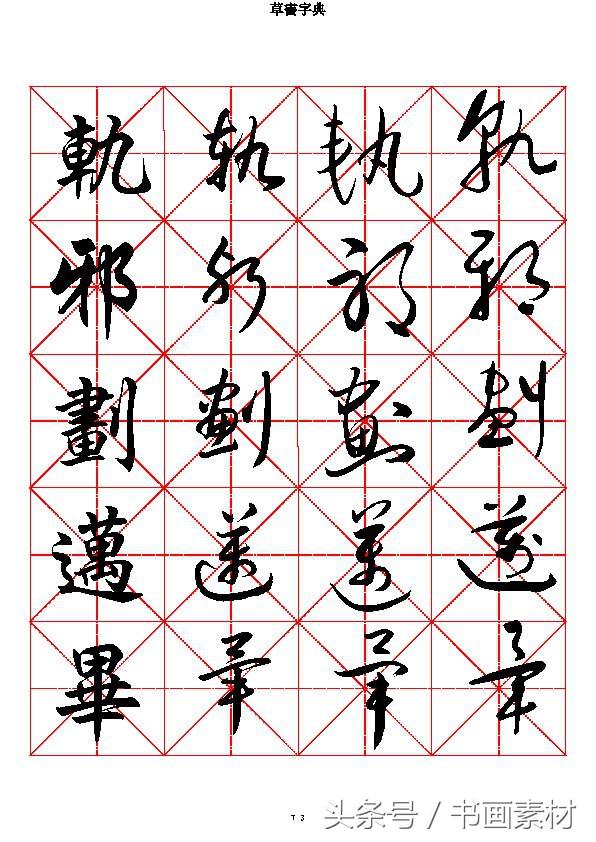 草書字典
軌 軌 軌 軌
邪 邪 邪 邪
劃 劃 劃 劃
邁 邁 邁 邁
畢 畢 畢 畢
T 3
头条号 / 书画素材